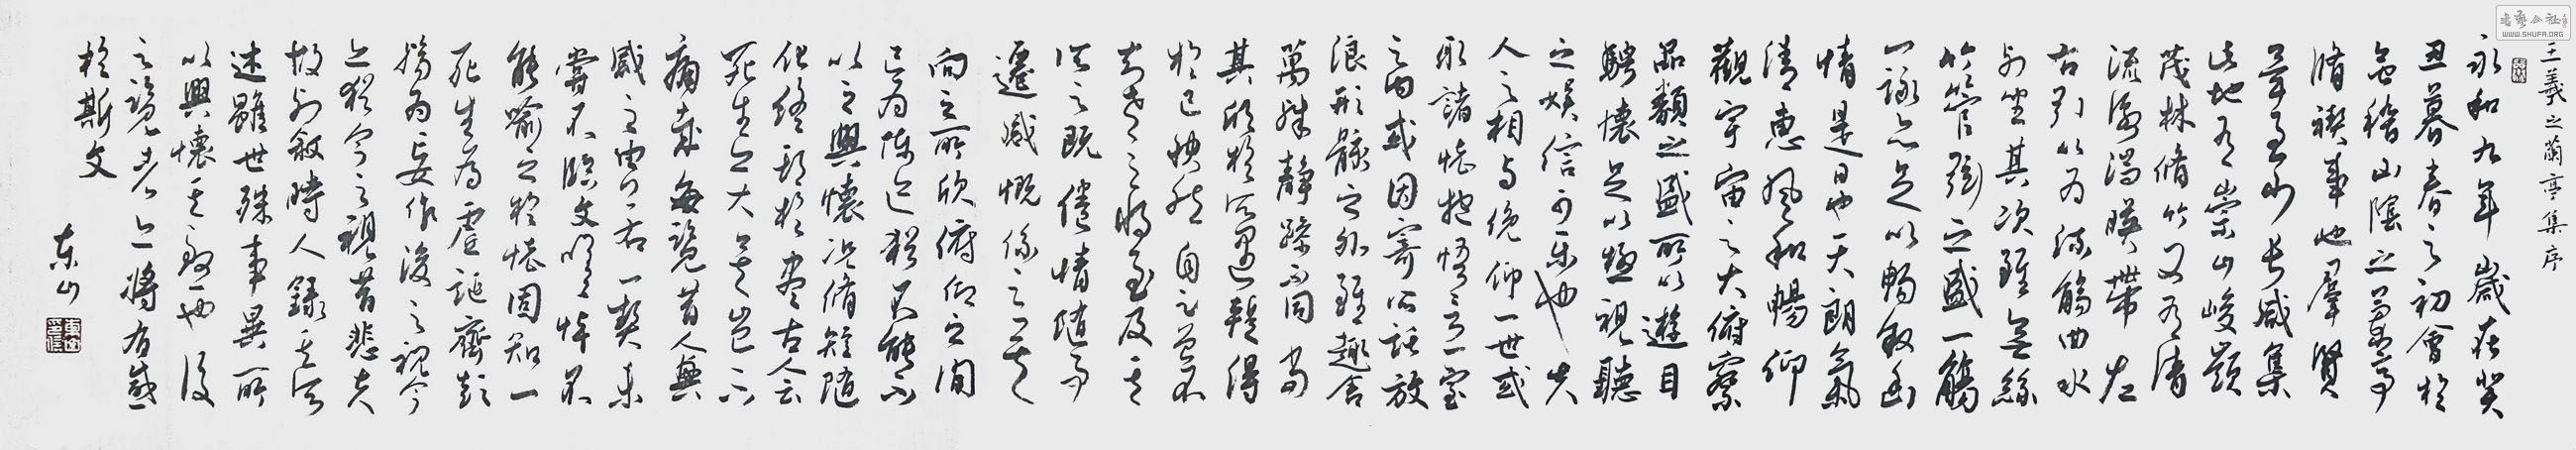 王羲之蘭亭集序
永和九年歲在癸
丑暮春之初會於
會稽山陰之蘭亭
脩禊事也羣賢
畢至少長咸集
此地有崇山峻嶺
茂林脩竹又有清
流激湍暎帶左
右引以為流觴曲水
列坐其次雖無絲
竹管弦之盛一觴
一詠亦足以暢敘幽
情是日也天朗氣
清惠風和暢仰
觀宇宙之大俯察
品類之盛所以遊目
騁懷足以極視聽
之娛信可樂也夫
人之相與俛仰一世或
取諸懷抱悟言一室
之內或因寄所託放
浪形骸之外雖趣舍
萬殊靜躁不同當
其欣於所遇暫得
於己怏然自足曾不
知老之將至及其
所之既倦情隨事
遷感慨係之矣
向之所欣俯仰之間
已為陳迹猶不能不
以之興懷況脩短隨
化終期於盡古人云
死生亦大矣豈不
痛哉每覽昔人興
感之由若合一契未
嘗不臨文嗟悼不
能喻之於懷固知一
死生為虛誕齊彭
殤為妄作後之視今
亦猶今之視昔悲夫
故列敘時人錄其所
述雖世殊事異所
以興懷其致一也後
之覽者亦將有感
於斯文
東山
WWW.SHUFA.ORG